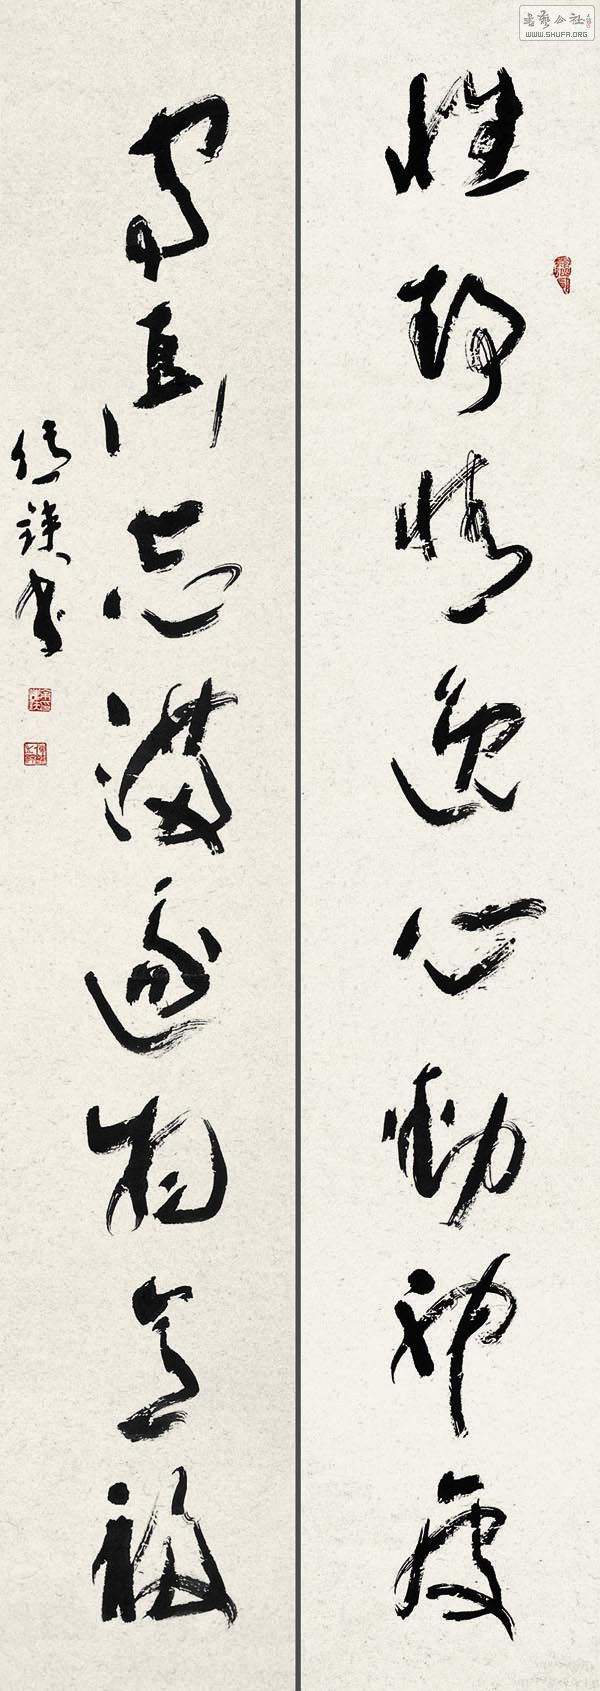 书艺公社
WWW.SHUFA.ORG
性静情逸心動神疲
守真志滿逐物意移
書